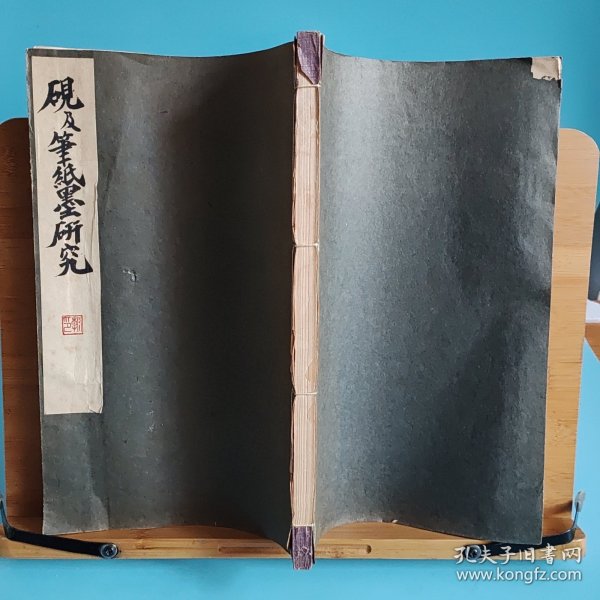 硯及筆紙墨研究
孔夫子旧书网
www.kongfz.com